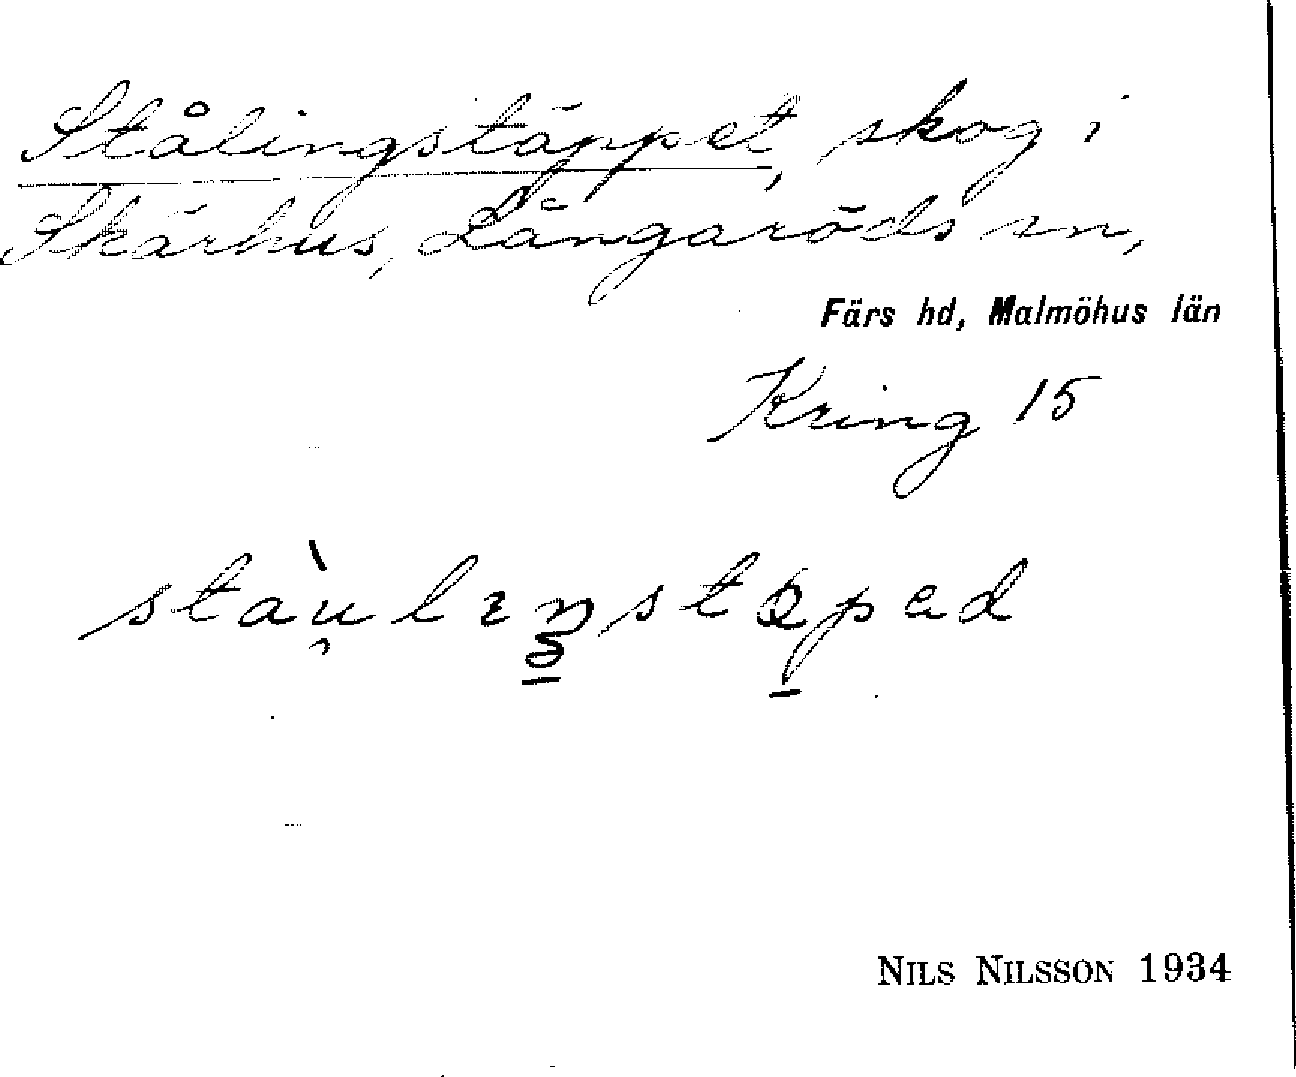 Stålingstäppet, skog i
Skärhus, Långaröds sn,
Färs hd, Malmöhus län
Kring 15
NILS NILSSON 1934